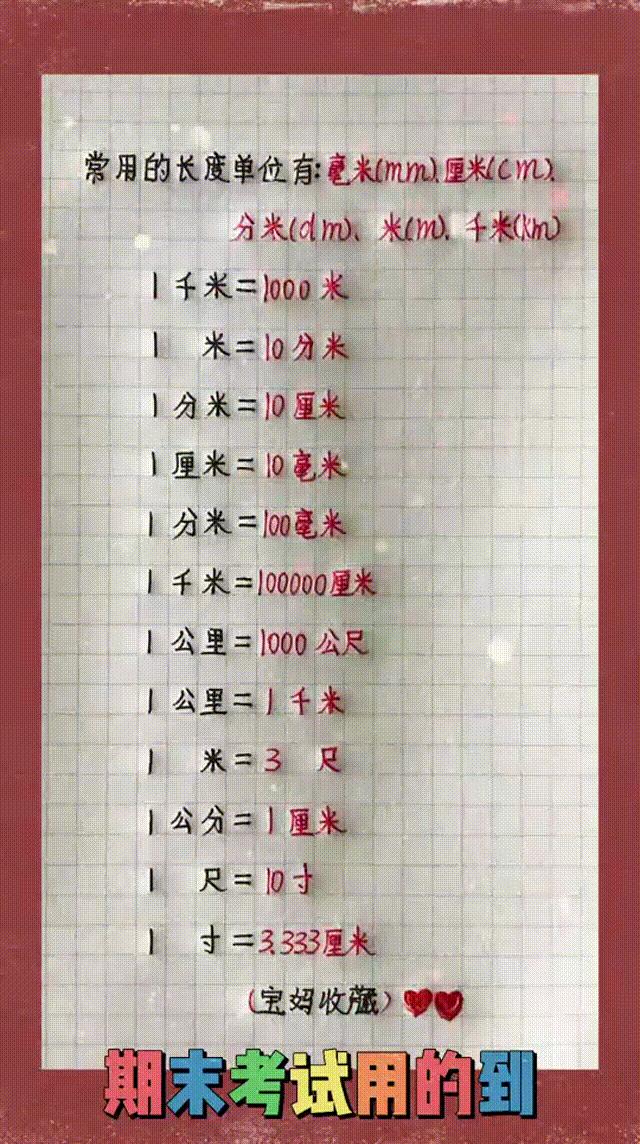 常用的长度单位有:毫米(mm)、厘米(cm)、
分米(dm)、米(m)、千米(km)
1千米=1000米
1 米=10分米
1分米=10厘米
1厘米=10毫米
1分米=100毫米
1千米=100000厘米
1公里=1000公尺
1公里=1千米
1 米=3 尺
1公分=1厘米
1 尺=10寸
1 寸=3.333厘米
(宝妈收藏)
期末考试用的到